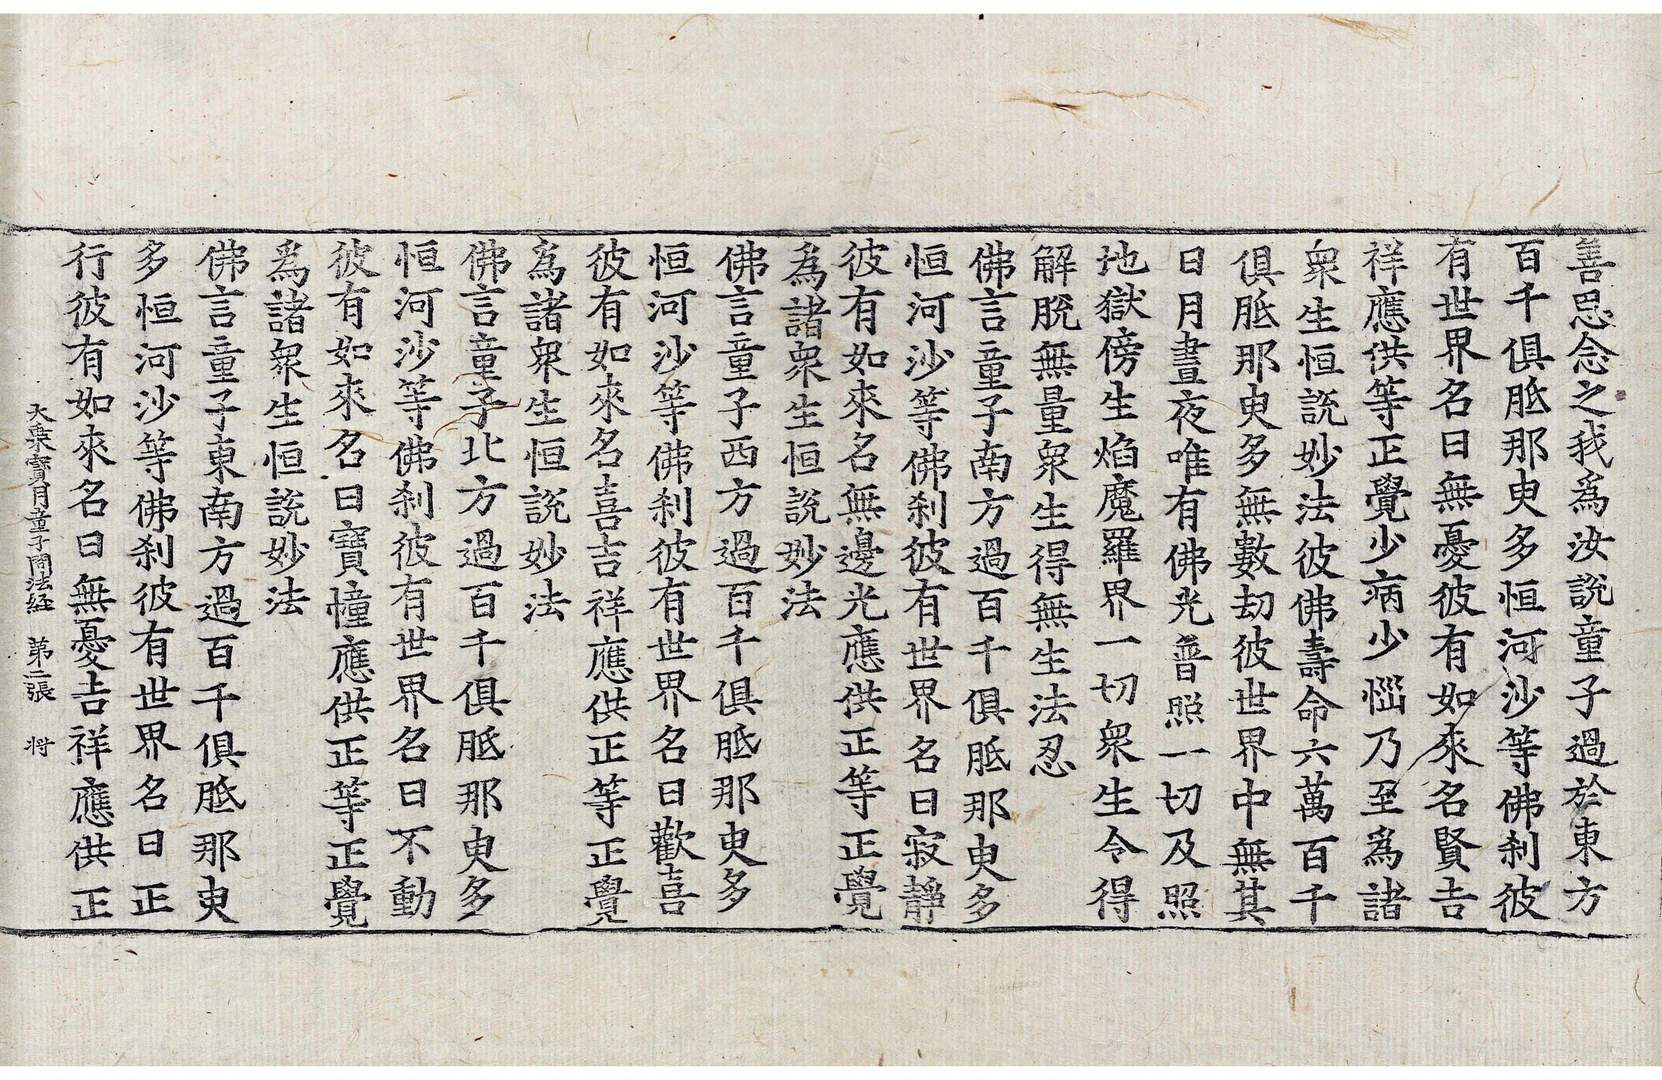 善思念之我為汝說童子過於東方
百千俱胝那庾多恒河沙等佛刹彼
有世界名曰無憂彼有如來名賢吉
祥應供等正覺少病少惱乃至為諸
衆生恒說妙法彼佛壽命六萬百千
俱胝那庾多無數劫彼世界中無其
日月晝夜唯有佛光普照一切及照
地獄傍生焰魔羅界一切衆生令得
解脫無量衆生得無生法忍
佛言童子南方過百千俱胝那庾多
恒河沙等佛刹彼有世界名曰寂靜
彼有如來名無邊光應供正等正覺
為諸衆生恒說妙法
佛言童子西方過百千俱胝那庾多
恒河沙等佛刹彼有世界名曰歡喜
彼有如來名喜吉祥應供正等正覺
為諸衆生恒說妙法
佛言童子北方過百千俱胝那庾多
恒河沙等佛刹彼有世界名曰不動
彼有如來名曰寶幢應供正等正覺
為諸衆生恒說妙法
佛言童子東南方過百千俱胝那庾
多恒河沙等佛刹彼有世界名曰正
行彼有如來名曰無憂吉祥應供正
大乗寶月童子問法経　第二張　将